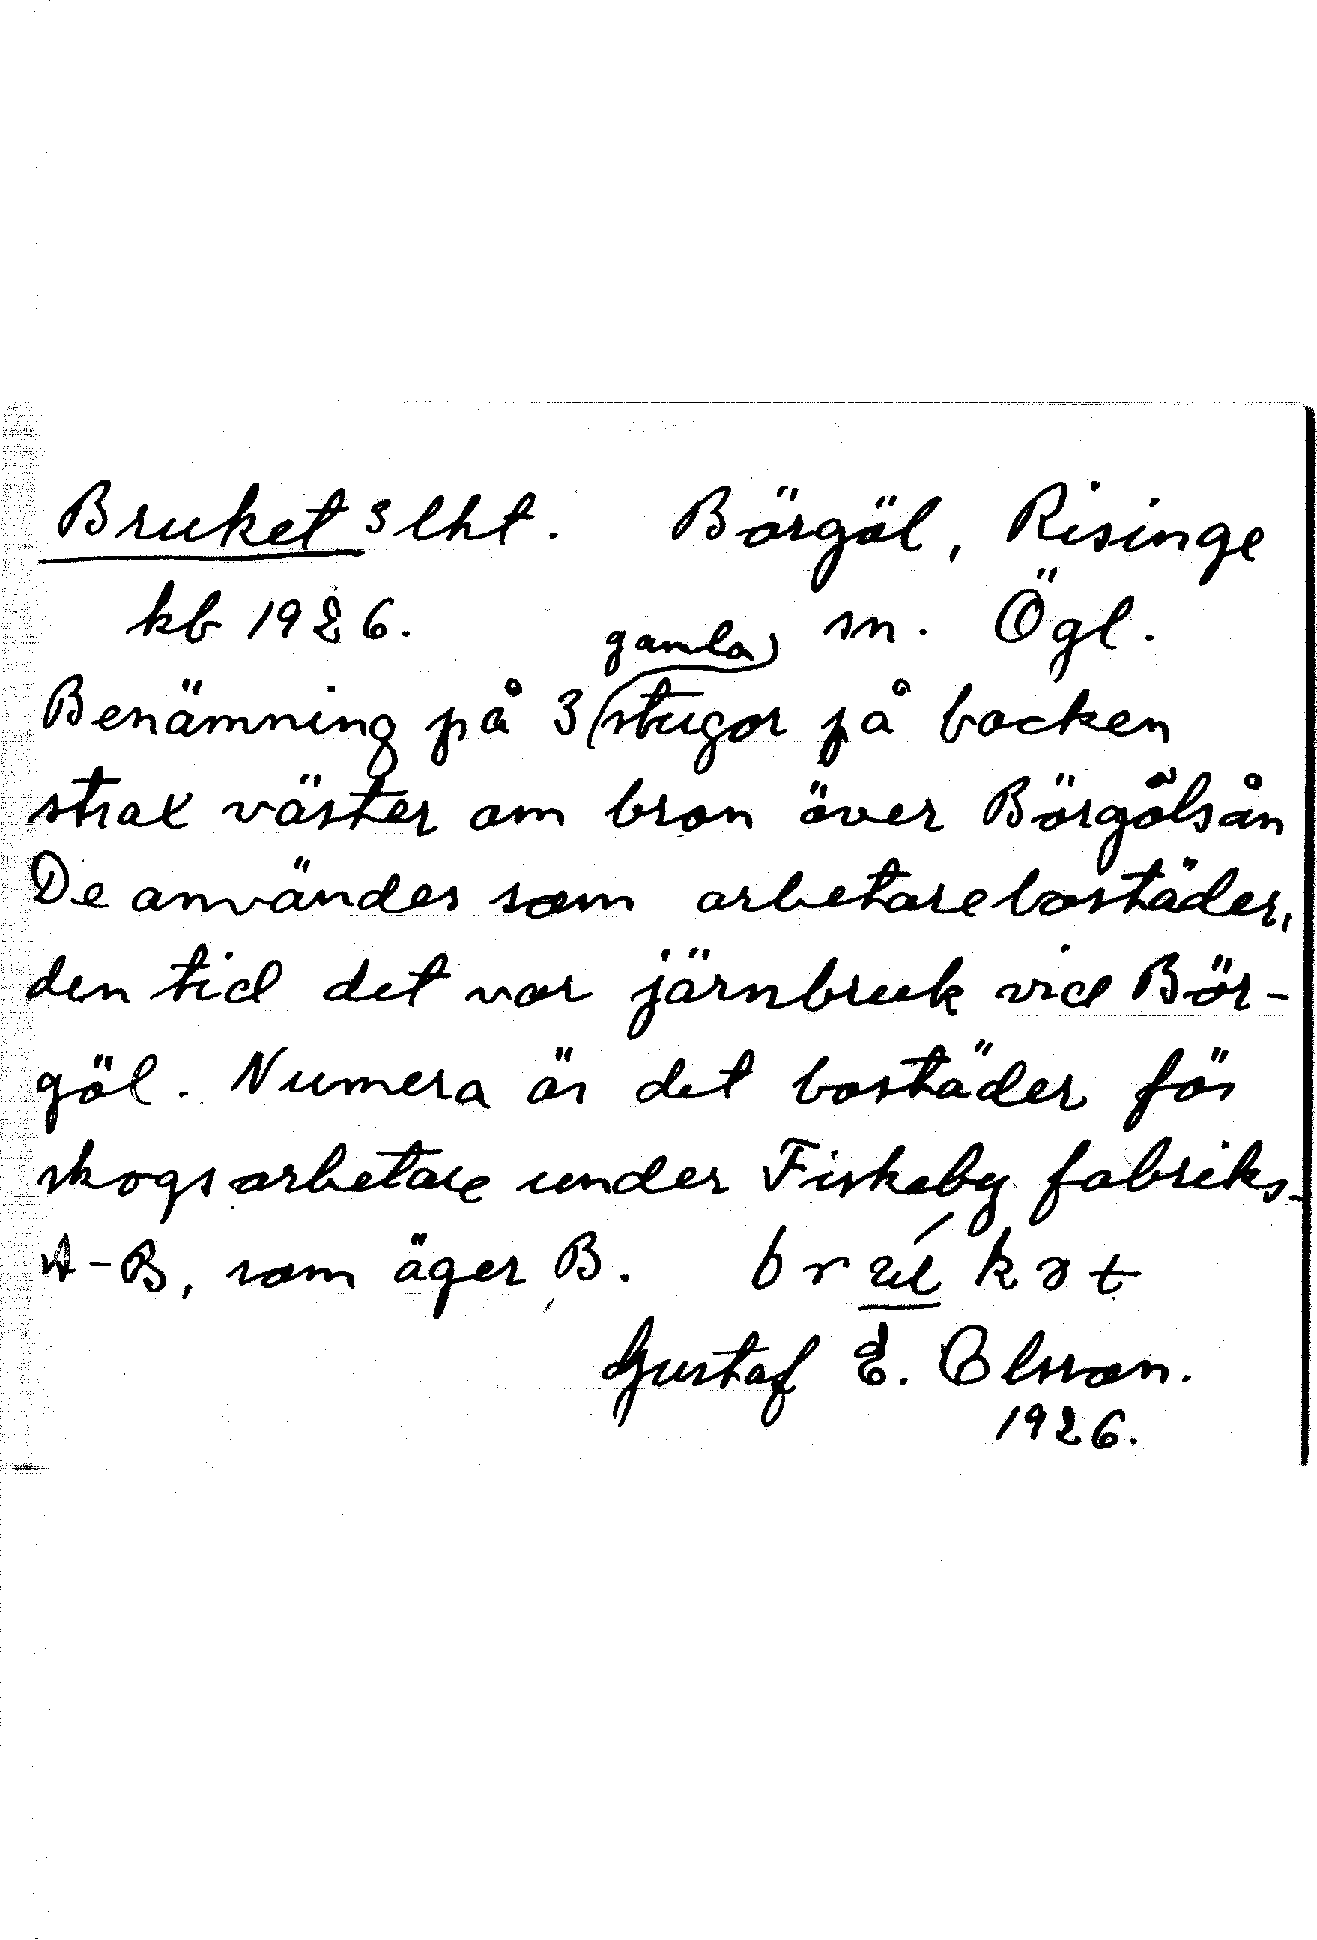 Bruket 3 lht. Börgöl, Risinge
kb 1926. sn. Ögl.
Benämning på 3 gamla stugor på backen
strax väster om bron över Börgölsån
De användes som arbetarebostäder,
den tid det var järnbruk vid Bör-
göl. Numera är det bostäder för
skogsarbetare under Fiskeby fabriks-
A-B, som äger B. brúkət
Gustaf E. Olsson.
1926.